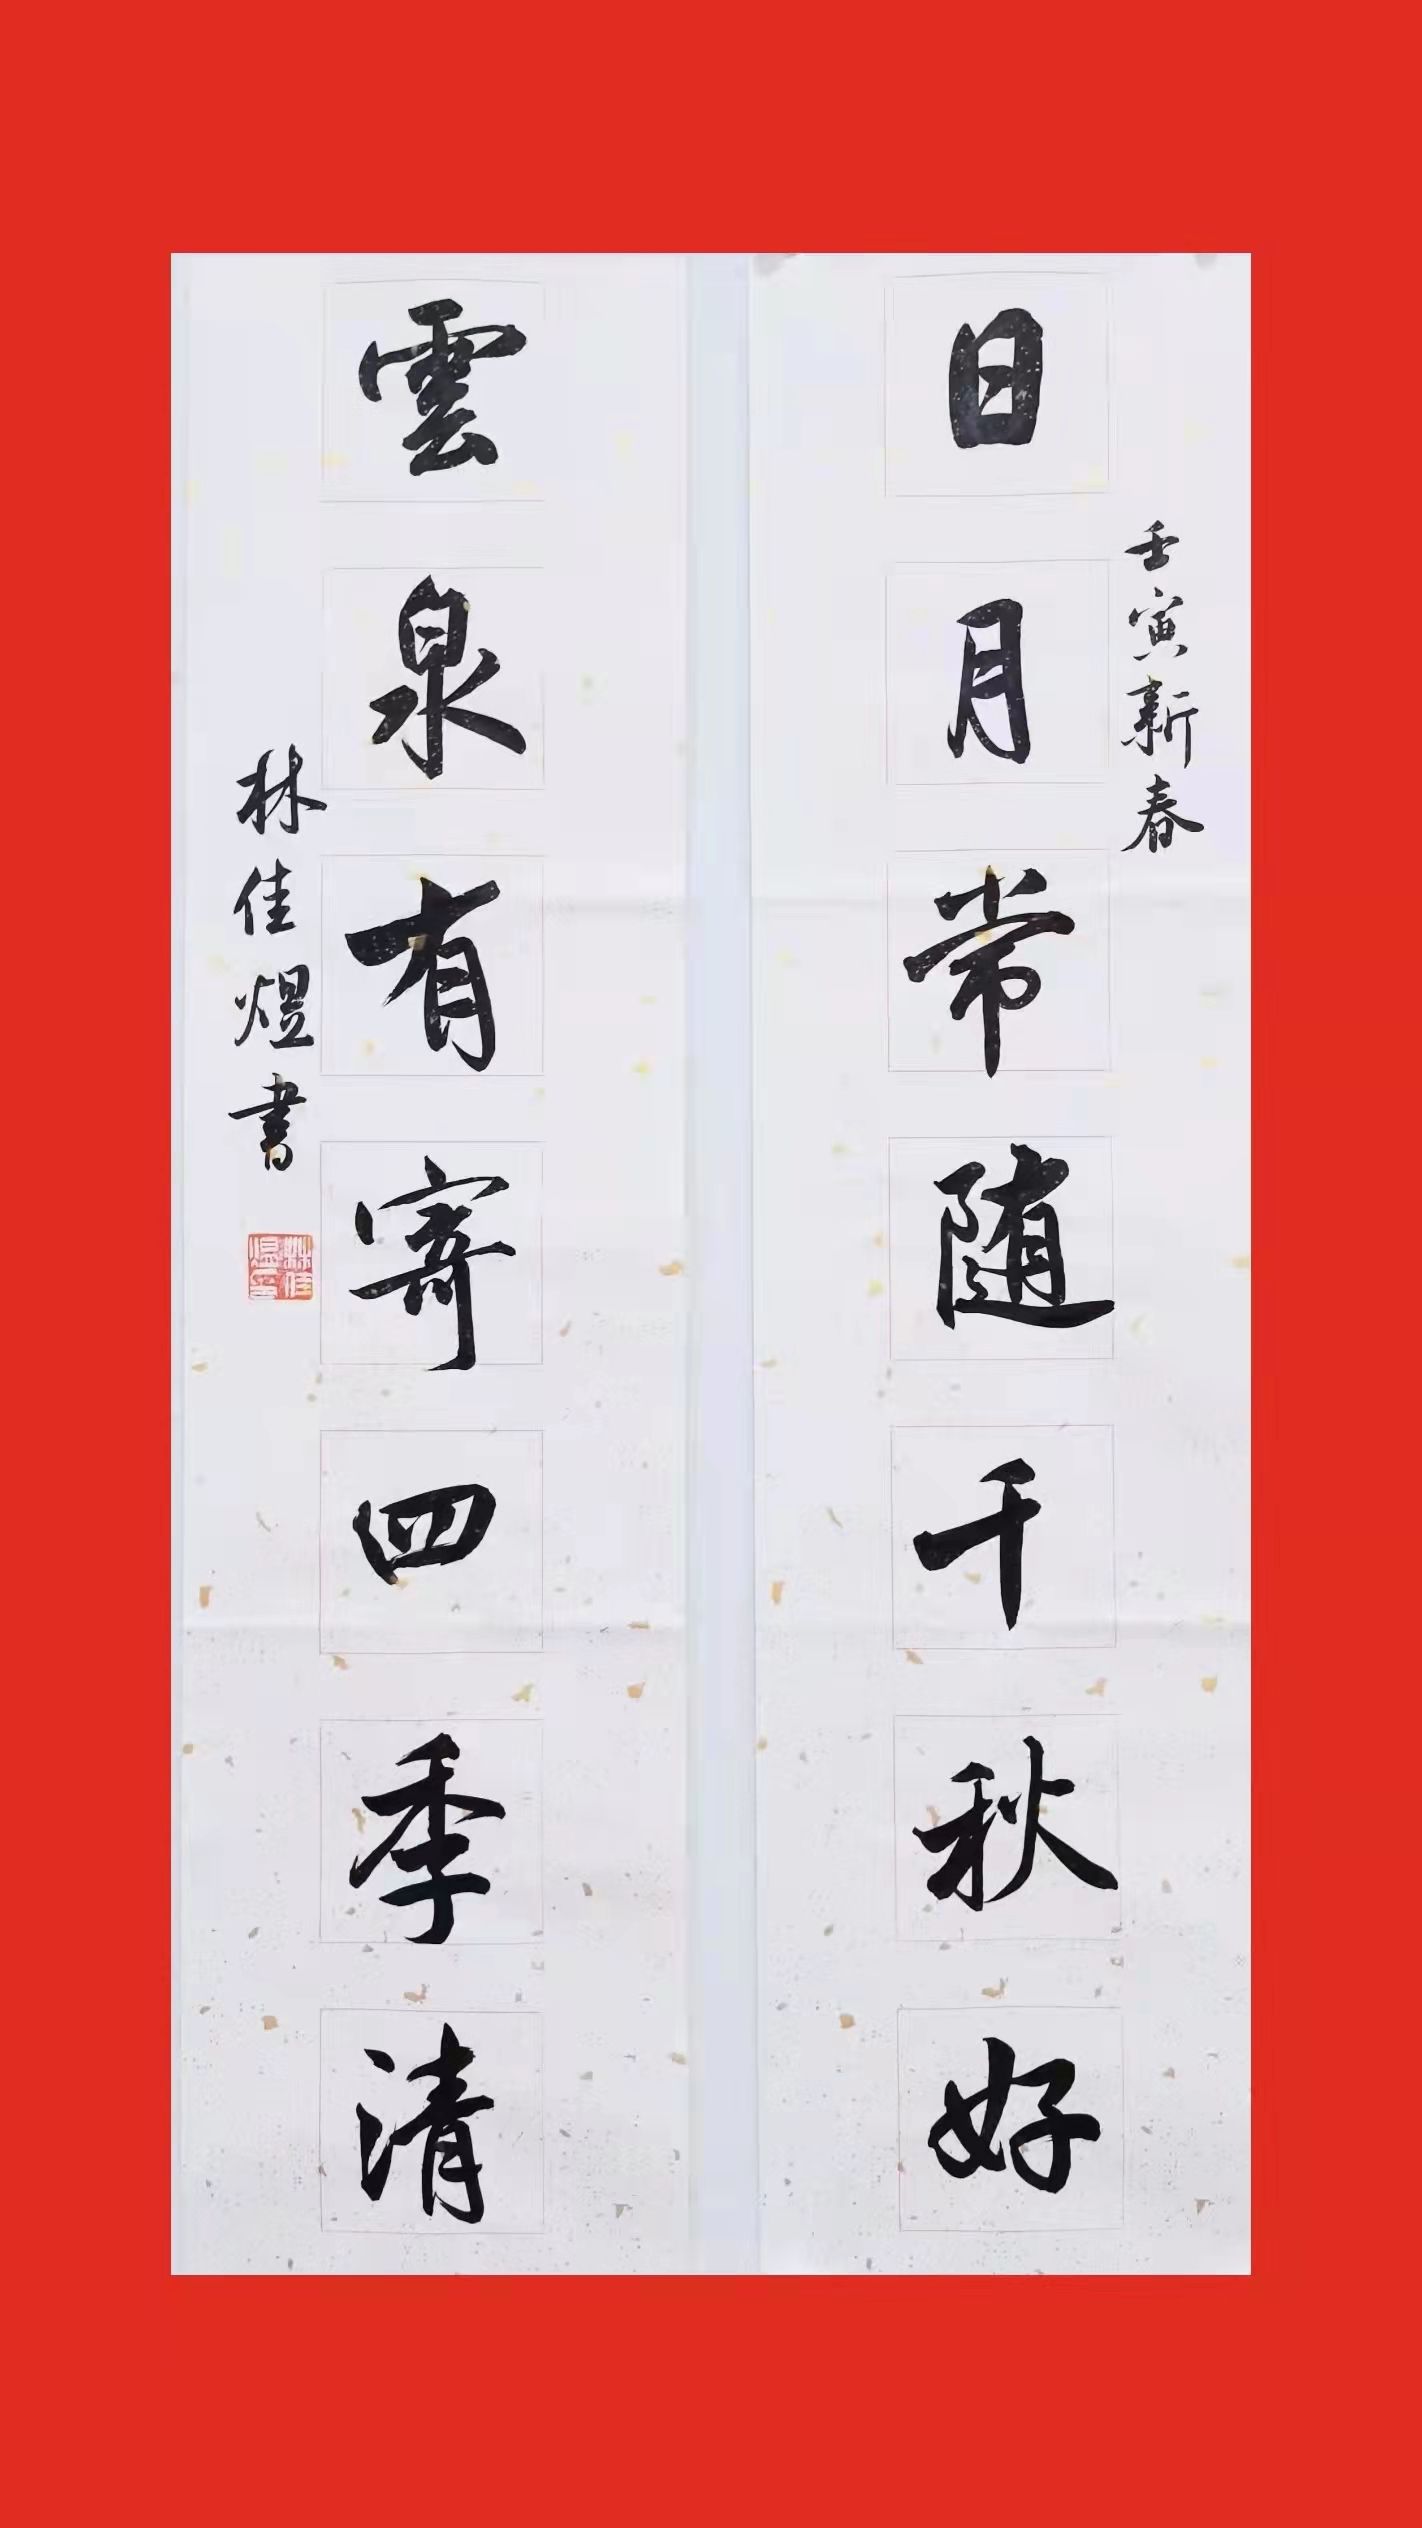 壬寅新春
日月常随千秋好
雲泉有寄四季清
林佳煜書